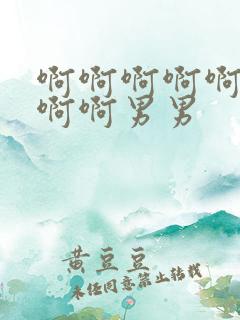 啊啊啊啊啊
啊啊男男
黄豆豆
未经同意禁止转载